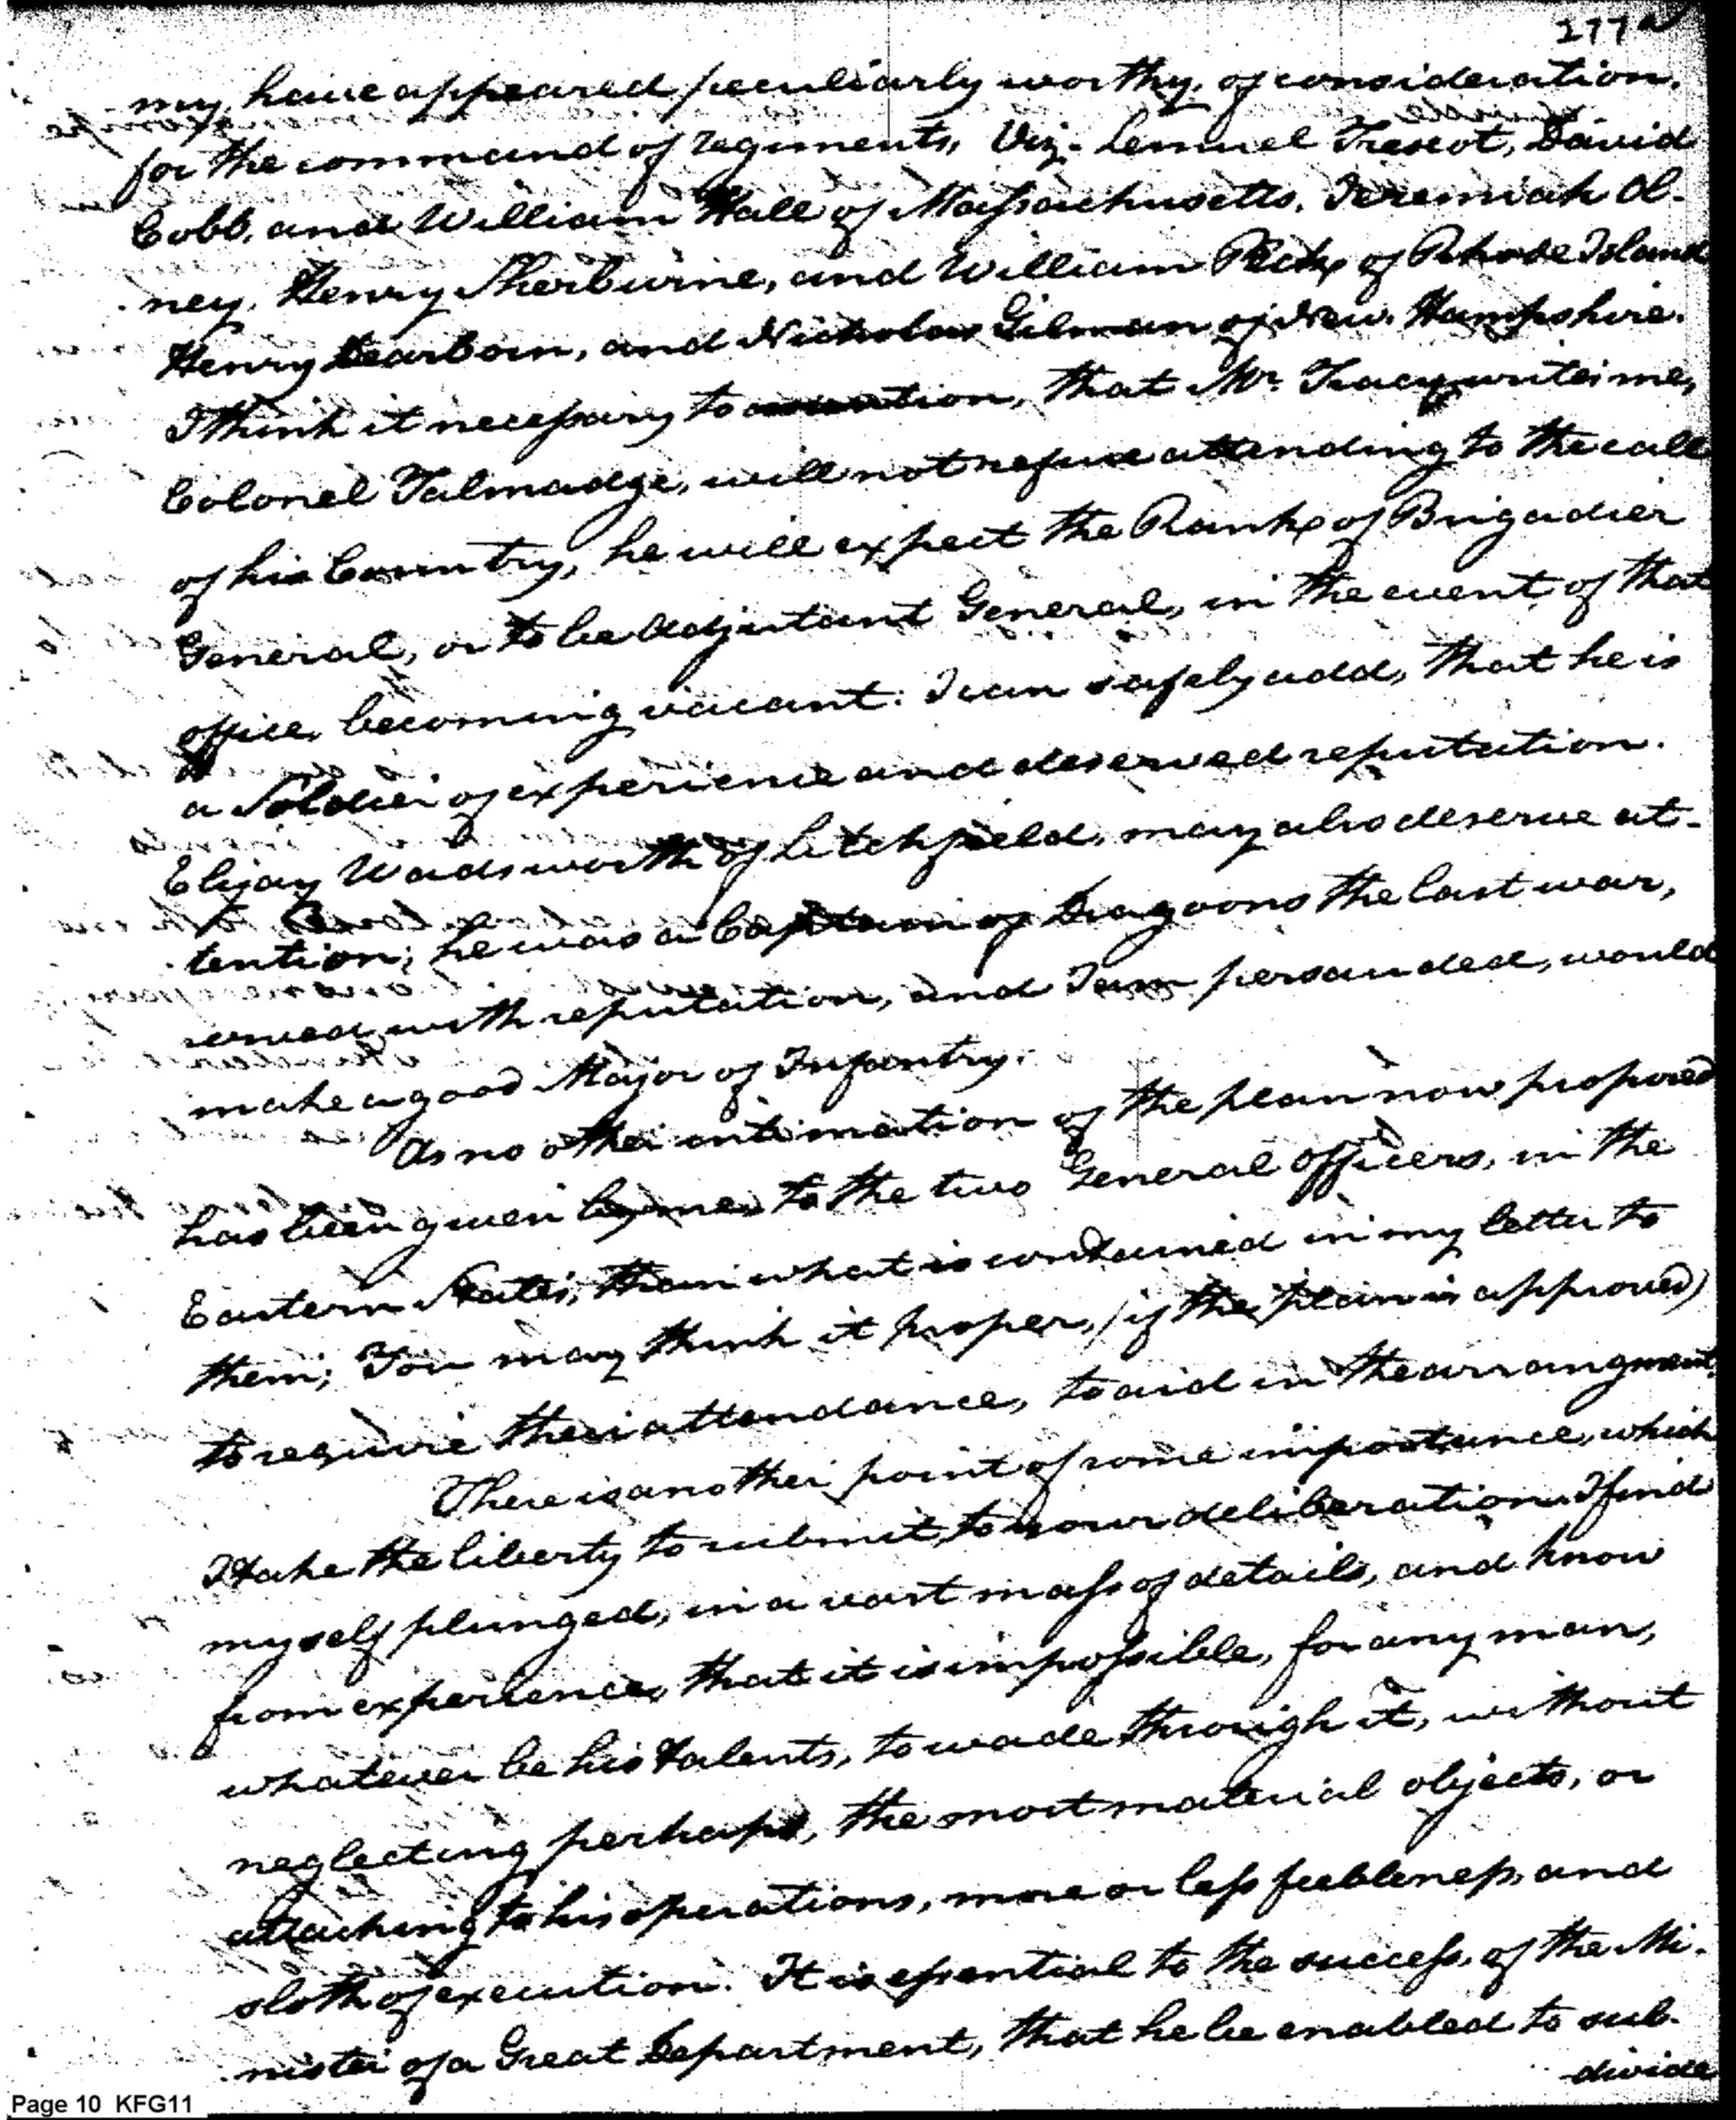 277a
my, have appeared peculiarly worthy, of consideration,
for the command of regiments, Viz. Lemuel Trescot, David
Cobb, and William Hall of Massachusetts, Jeremiah Ol-
ney, Henry Sherburne, and William Peck of Rhode Island
Henry Dearborn, and Nicholas Gilman of New Hampshire.
I think it necessary to mention, that Mr. Tracy writes me,
Colonel Talmadge, will not refuse attending to the call
of his Country, he will expect the Rank of Brigadier
General, or to be Adjutant General, in the event of that
office, becoming vacant. I can safely add, that he is
a Soldier of experience and deserved reputation.
Elijay Wadsworth of Litchfield, may also deserve at-
tention; he was a Captain of Dragoons the last war,
served with reputation, and I am persauded, would
make a good Major of Infantry.
As no other intimation of the plan now proposed
has been given by me, to the two General Officers, in the
Eastern States, than what is contained in my letter to
them; You may think it proper, (if the plan is approved)
to require their attendance, to aid in the arrangment.
There is another point of some importance, which
I take the liberty to submit, to your deliberation. I find
myself plunged, in a vast mass of details, and know
from experience, that it is impossible, for any man,
whatever be his talents, to wade through it, without
neglecting perhaps, the most material objects, or
attaching to his operations, more or less feebleness, and
sloth of execution. It is essential to the success, of the Mi-
nister of a Great Department, that he be enabled to sub-
divide
Page 10 KFG11